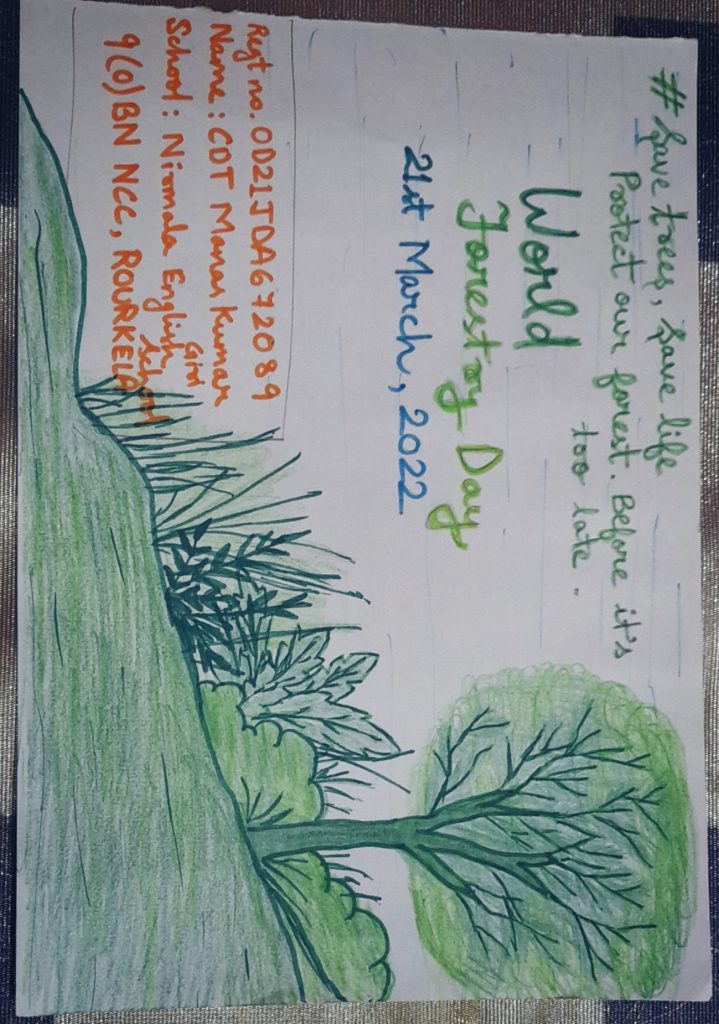 # Save trees, Save life
Protect our forest. Before it's
too late.
World
Forestry Day
21st March, 2022
Regt no. OD21JDA672089
Name: CDT Manas Kumar
Giri
School: Nirmala English
School
9(O) BN NCC, ROURKELA